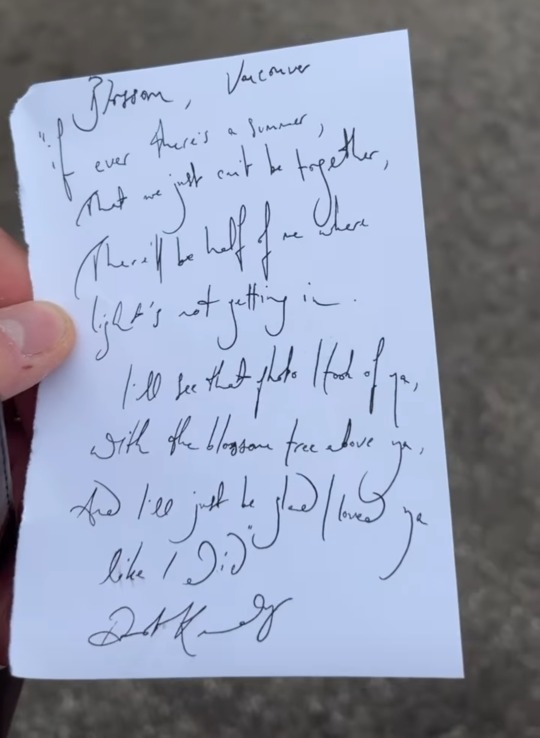 Blossom, Vancouver
"if ever there's a summer,
That we just can't be together,
There'll be half of me where
light's not getting in.
I'll see that photo I took of ya,
with the blossom tree above ya,
And I'll just be glad I loved ya
like I Did"
Dermot Kennedy